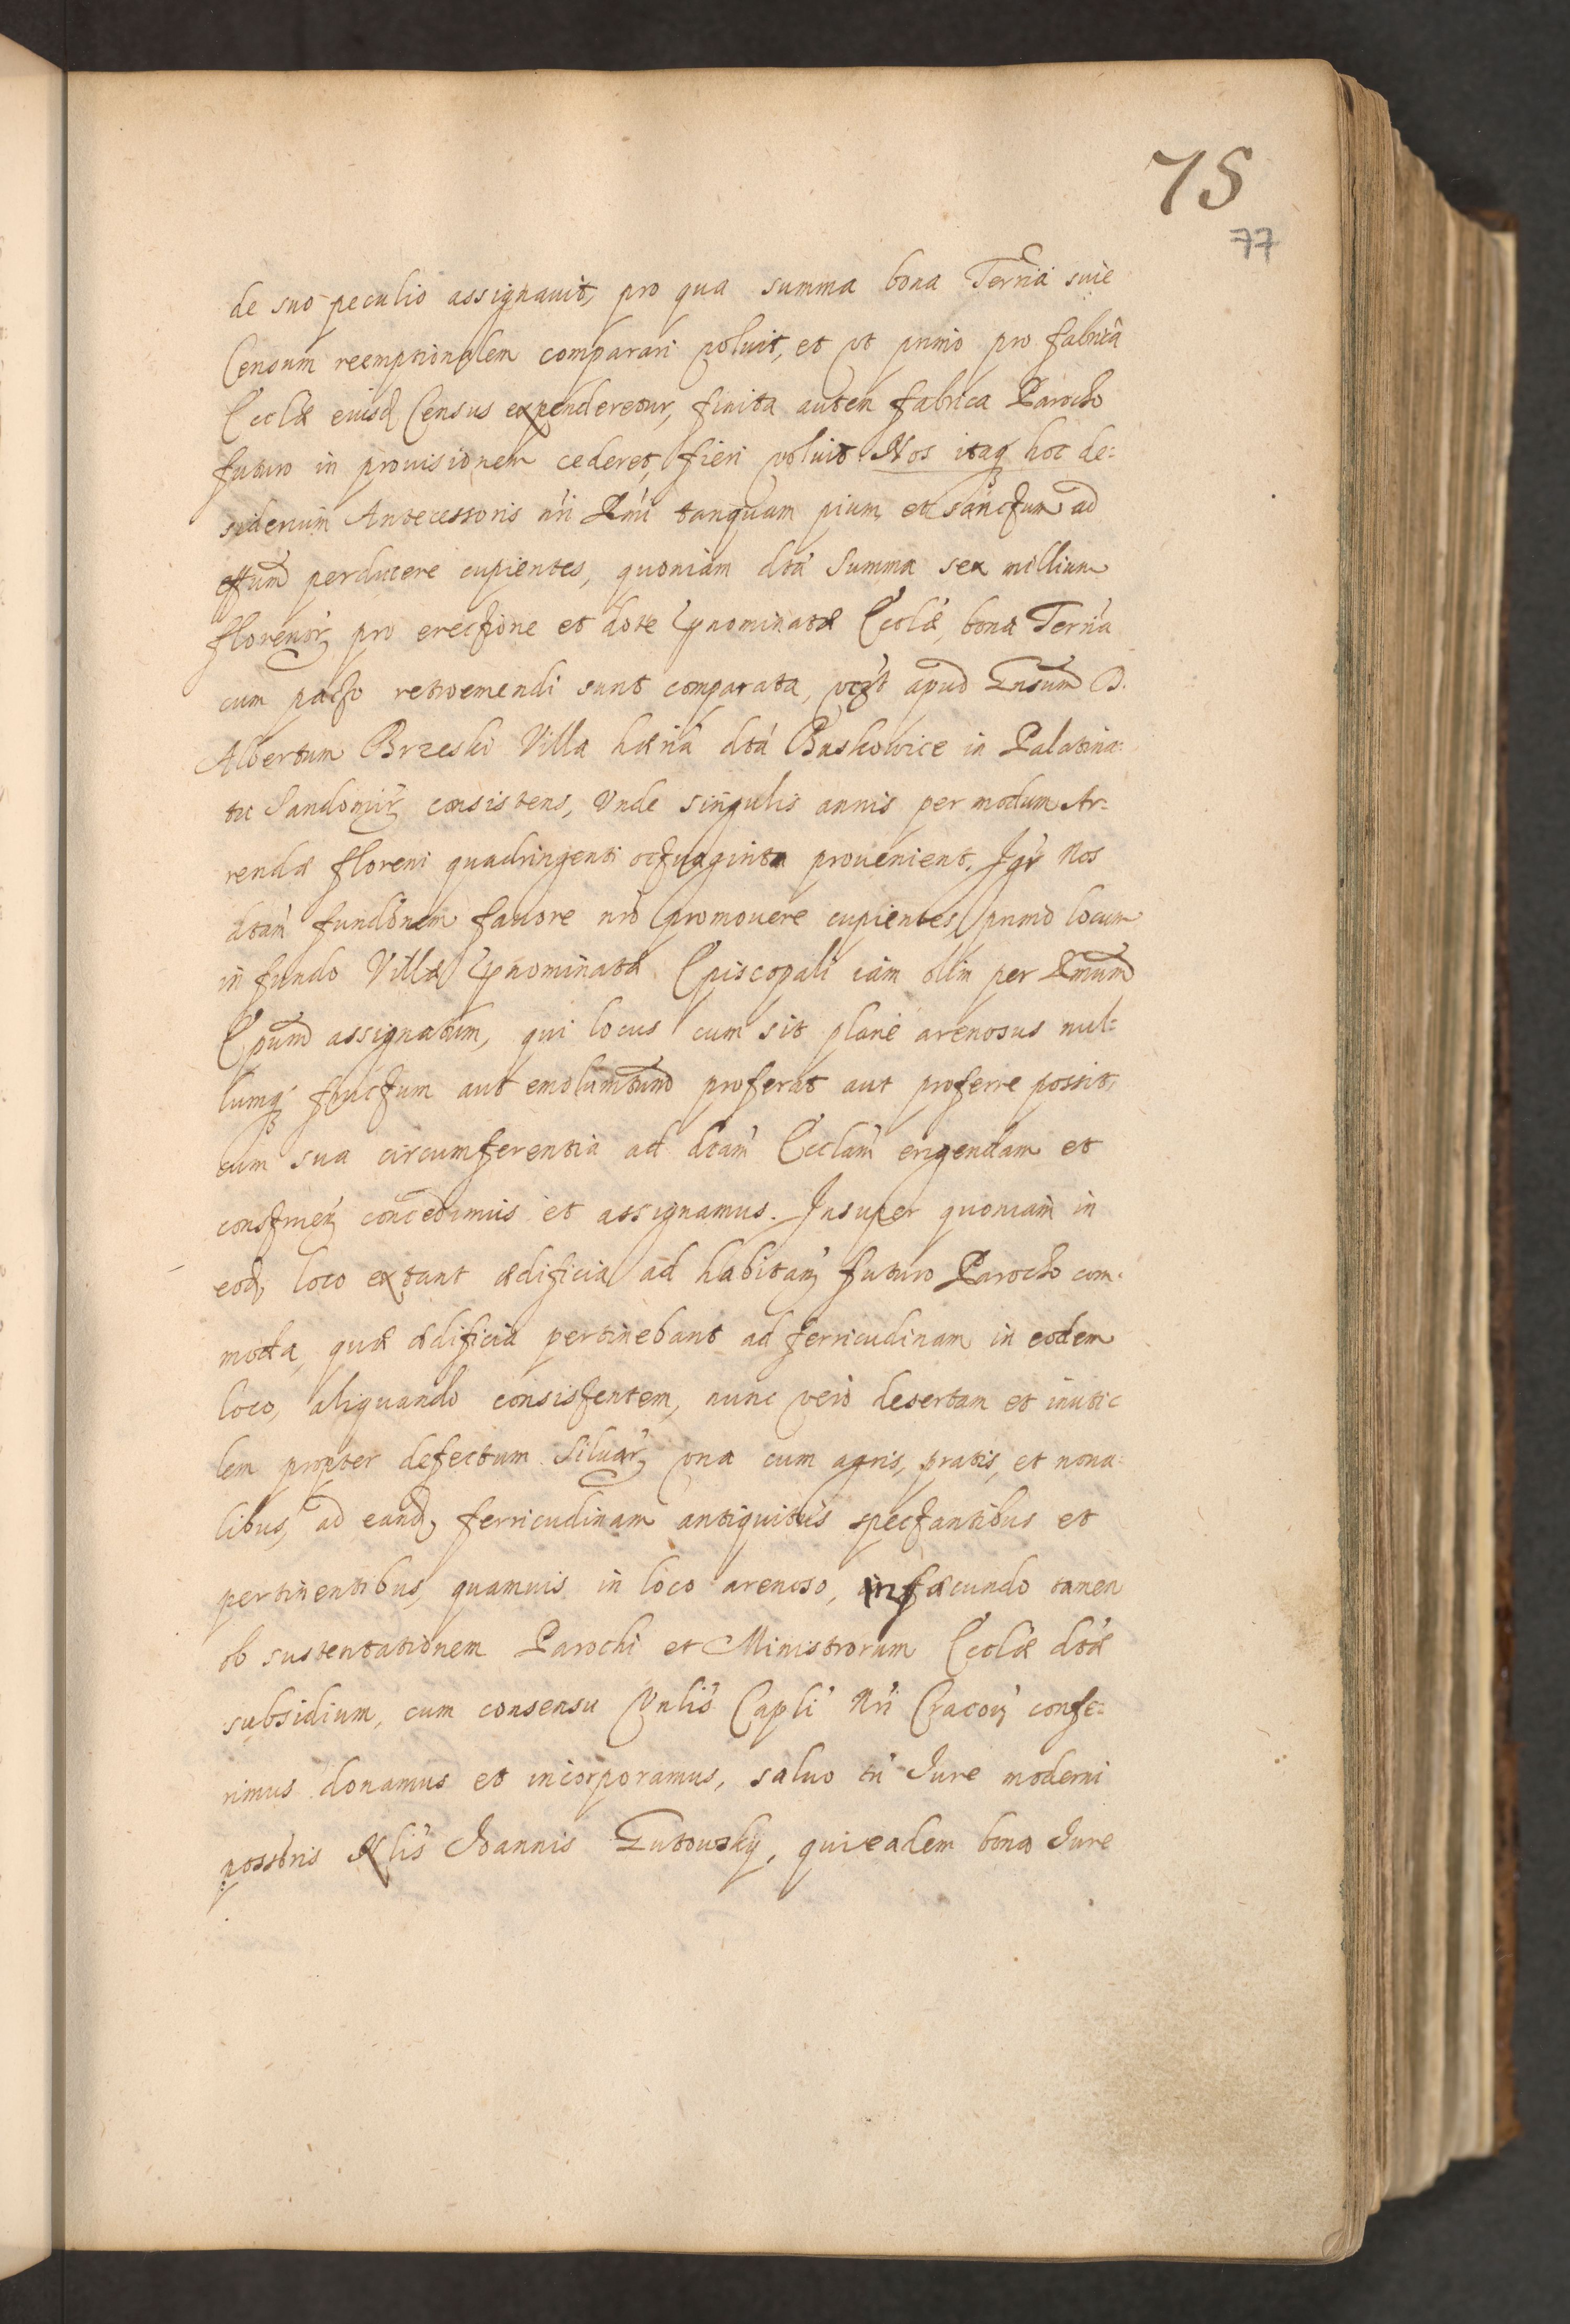 75
77
de suo peculio assignauit, pro qua summa bona Terria siue
Censum reemptionalem comparari voluit, et vt primo pro fabrica
Ecclæ eiusd Census expenderetur, finita autem fabrica Parocho
futuro in prouisionem cederet, fieri voluit. Nos itaq hoc de=
siderium Antecessoris nri Rmi tanquam pium et sanctum ad
effum perducere cupientes, quoniam dta Summa sex millium
florenor, pro erectione et dote prænominatæ Ecclæ, bona Terria
cum pacto retroemendi sunt comparata, vczt apud Gnsum D.
Albertum Brzeski Villa hæria dta Buskowice in Palatina=
tu Sandomir consistens, Vnde singulis annis per modum Ar=
rendæ floreni quadringenti octuaginta prouenient. Igr Nos
dtam fundonem fauore nro promouere cupientes, primo locum
in fundo Villæ prænominatæ Episcopali iam olim per Rmum
Epum assignatum, qui locus cum sit plane arenosus nul=
lumq fructum aut emolumtum proferat aut proferre possit,
cum sua circumferentia ad dtam Ecclam erigendam et
construen concedimus et assignamus. Insuper quoniam in
eod loco extant ædificia ad habitan futuro Parocho com=
moda, quæ ædificia pertinebant ad ferricudinam in eodem
loco, aliquando consistentem, nunc vero desertam et inuti=
lem propter defectum Siluar, vna cum agris, pratis, et nona=
libus, ad eand ferricudinam antiquitus spectantibus et
pertinentibus, quamuis in loco arenoso, infæcundo tamen
ob sustentationem Parochi et Ministrorum Ecclæ dtæ
subsidium, cum consensu Vnlis Capli Nri Cracou confe=
rimus donamus et incorporamus, saluo tn Iure moderni
possoris Nlis Ioannis Gutowsky, qui eadem bona Iure